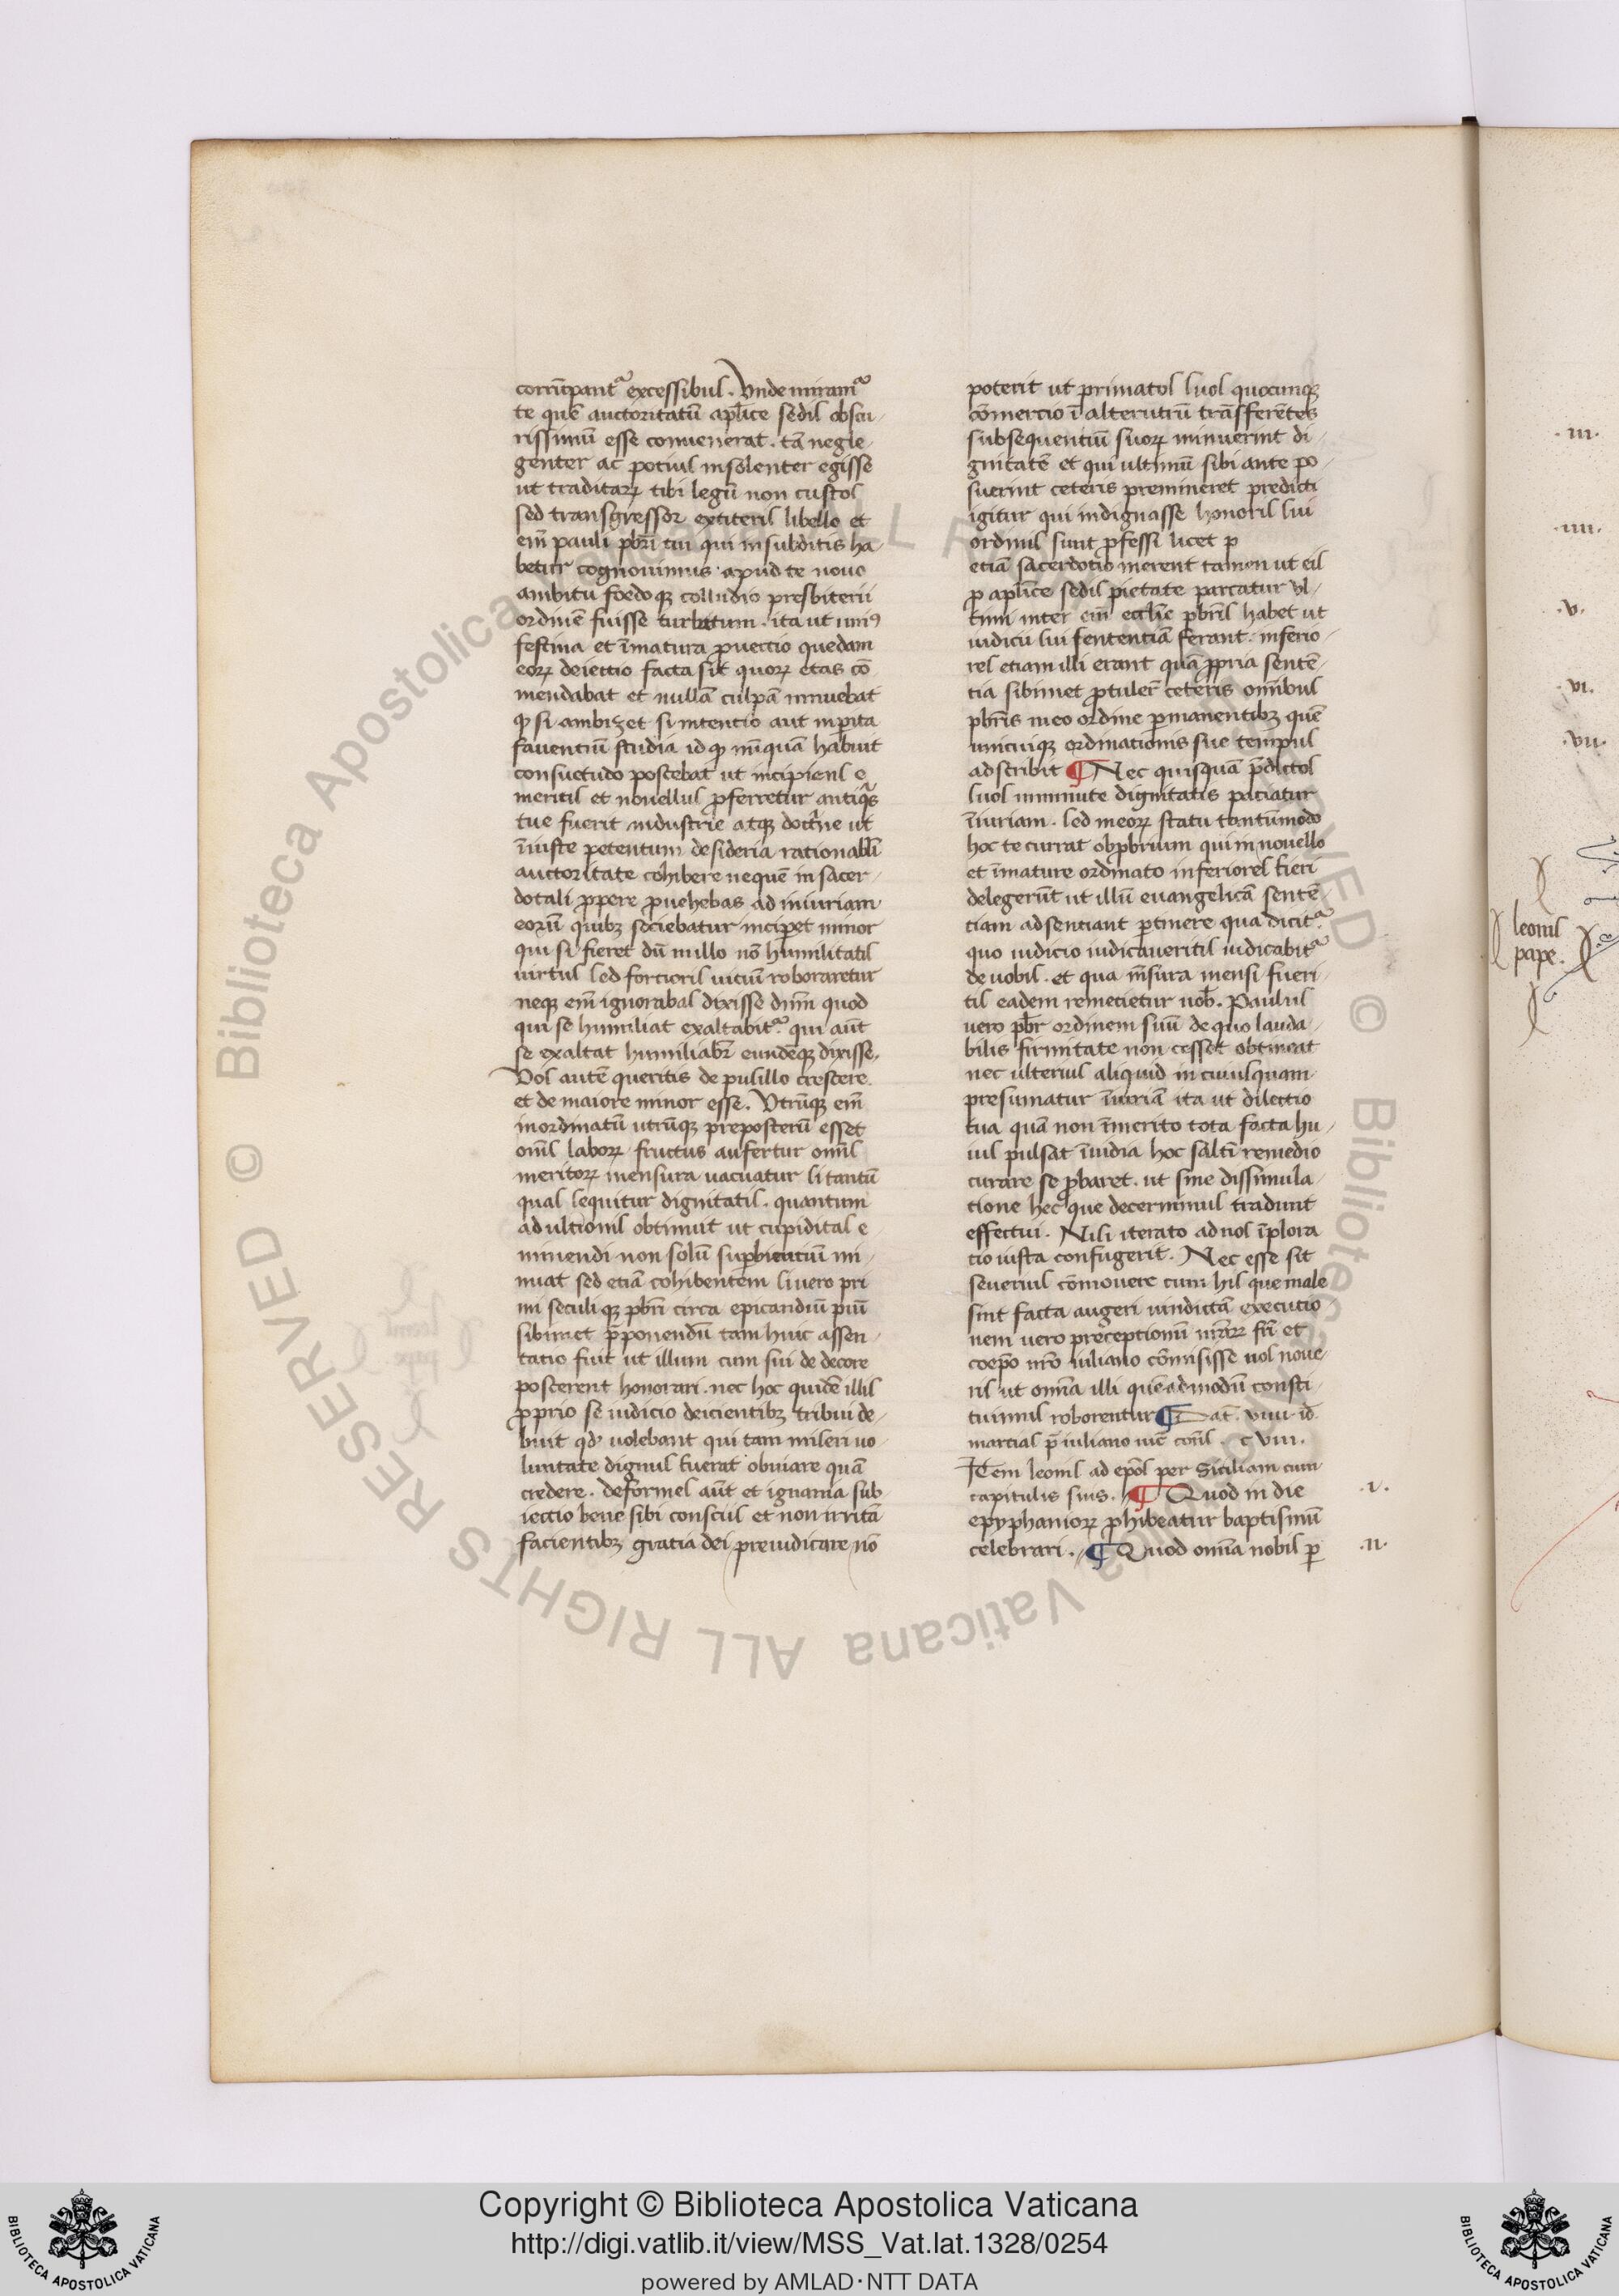 corrūpantᷣ excessibus. Unde miramᷣ
te quē auctoritatū aplice sedis obscu-
rissimū esse convenerat. tā negle-
genter ac potius insolenter egisse
ut traditaꝝ tibi legū non custos
sed transgressor extiteris libello et
em̄ pauli pb̄ri tui qui in subditis ha-
betur cognovimus apud te novo
ambitu foedoqꝫ colludio presbiterii
ordinē fuisse turbatum. ita ut uniꝰ
festina et īmatura ꝓvectio quedam
eoꝝ deiectio facta sit quoꝝ etas cō
mendabat et nullā culpā innuebat
ꝙ si ambizet si intentio aut inꝑita
faventiū studia id ꝙ nūquā habuit
consuetudo poscebat ut incipiens e
meritis et novellus ꝓferretur antiqͥs
tue fuerit industrie atqꝫ doctͥne ut
īiuste petentum desideria rationabli
auctoritate cohibere nequē in sacer-
dotali ꝓpere ꝓvehebas ad iniuriam
eorū quibꝫ sociebatur inciꝑet minor
qui si fieret dū nullo nō humilitatis
virtus sed fortioris vitiū roboraretur
neqꝫ em̄ ignorabas dixisse dn̄m quod
qui se humiliat exaltabitᷣ. qui aūt
se exaltat humiliabr̄ eundēqꝫ dixisse.
Vos autē queritis de pusillo crescere
et de maiore minor esse. Utrūqꝫ em̄
inordinatū utrūqꝫ preposterū esset
om̄s laboꝝ fructus aufertur om̄s
meritoꝝ mensura vacuatur si tantū
quas sequitur dignitatis. quantum
adultionis obtinuit ut cupiditas e
minendi non solū suꝑbientiū mi-
nuat sed etiā cohibentem si vero pri
mi seculi qꝫ pb̄ri circa epicandiū piū
sibimet p̄ponendū tam huic assen-
tatio fuit ut illum cum sui de decore
poscerent honorari. nec hoc quidē illis
ꝓprio se iudicio deicientibꝫ tribui de-
buit qd volebant qui tam miseri vo-
luntate dignus fuerat obviare quā
credere. deformes aūt et ignavia sub-
iectio bene sibi consciis et non irritā
facientibꝫ gratiā dei preiudicare nō
poterit ut primatos suos quocunqꝫ
cōmercio ī alterutrū trāsferētes
subsequentiū suoꝝ minuerint di-
gnitatē et qui ultimū sibi ante po-
suerint ceteris premineret predicti
igitur qui indignasse honoris sui
ordinis sunt ꝓfessi licet ꝑ
etiā sacerdotio merent tamen ut eis
ꝓ aplice sedis pietate parcatur ul-
timi inter em̄ ecclie pb̄ris habet ut
iudiciū sui sententiā ferant. inferio-
res etiam illi erant quā ꝓpria sentē-
tia sibimet ꝓtuler̄ ceteris omībus
pb̄ris ineo ordine ꝑmanentibꝫ quē
unicuiqꝫ ordinationis sue tempus
adscribit ¶ Nec quisquā p̄dictos
suos imminute dignitatis paciatur
īiuriam. sed meoꝝ statu tantūmodo
hoc te currat obꝓbrium qui in novello
et īmature ordinato inferiores fieri
delegerūt ut illū evangelicā sentē-
tiam adsentiant ꝑtinere qua dicitᷣ.
quo iudicio iudicaveritis iudicabitᷣ
de vobis. et qua m̄sura mensi fueri-
tis eadem remetietur vob̄. Paulus
vero pb̄r ordinem suū de quo lauda-
bilis firmitate non cesset obtineat
nec ulterius aliquid in cuiusquam
presumatur īiuriā ita ut dilectio
tua quā non īmerito tota facta hu-
ius pulsat īvidia hoc saltī remedio
curare se ꝓbaret. ut sine dissimula-
tione hec que decernimus tradunt
effectui. Nisi iterato ad nos īplora
tio iusta confugerit. Nec esse sit
severius cōmovere cum his que male
sint facta augeri vindictā executio-
nem vero preceptionū nr̄aꝝ fr̄i et
coepō nr̄o iuliano cōmisisse vos nove-
ris ut omīa illi quēadmodū consti-
tuimus roborentur ¶ Dat̄. viiii id
martias p̄ iuliano iuc̄ cons̄. c viii.
Item leonis ad epōs per Siciliam cum
capitulis suis. ¶ Quod in die
epyphanioꝝ ꝓhibeatur baptismū
celebrari. ¶ Quod omīa nobis ꝑ
.i.
.ii.
.iii.
.iiii.
.v.
.vi.
.vii.
leonis
pape.
© Biblioteca Apostolica Vaticana ALL RIGHTS RESERVED
Copyright © Biblioteca Apostolica Vaticana
http://digi.vatlib.it/view/MSS_Vat.lat.1328/0254
powered by AMLAD·NTT DATA
BIBLIOTECA APOSTOLICA VATICANA
BIBLIOTECA APOSTOLICA VATICANA